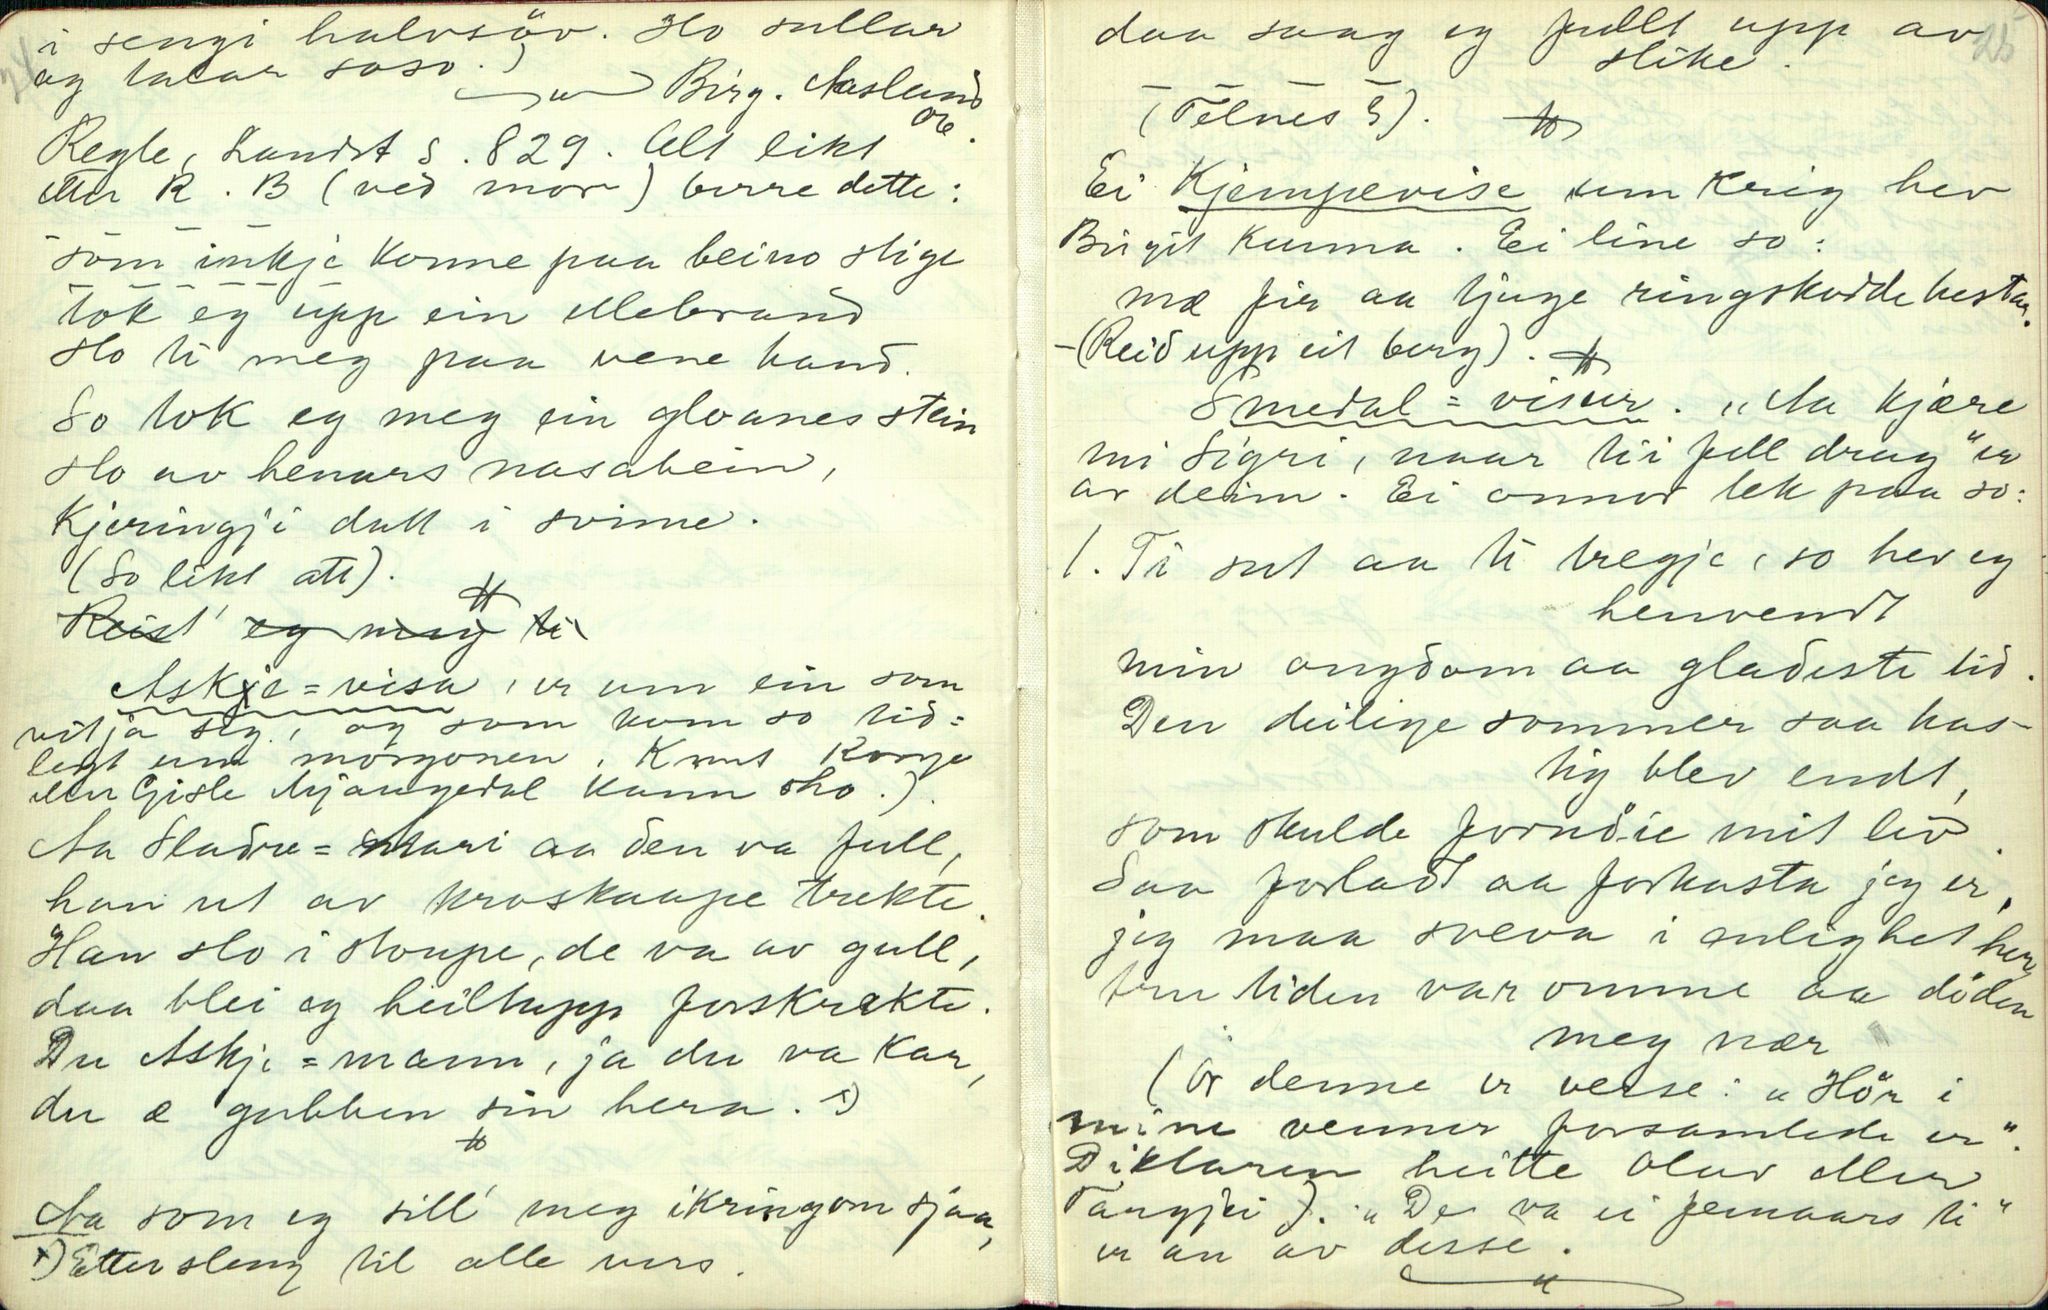 i sengi halvsöv. Ho sullar
og talar soso.)
Birg. Aasland
Regle, Landst s. 829. Alt likt
etter R. B (ved mor) berre dette:
som inkje konne paa beino stige
tok eg upp ein ellebrand
slo ti meg paa vene hand.
So tok eg meg ein gloanes stein
slo av henars nasabein,
Kjeringji datt i svime.
(So likt att).
Reist' eg meg ti
Askje=visa, er um ein som
vilja seg, og som kom so tid=
legt um morgonen. Knut
eller Gisle Mjaugedal kunn sho.)
Aa Sladre=mari aa den va full,
han ut av kroskaape trekte.
Han slo i stoupe, de va av gull,
daa blei eg heiltupp forskrekte.
Du Askje=mann, ja du va Kar,
du æ gubben sin hera. x)
Aa som eg sill' meg ikringom sjaa,
x) Ettersleng til alle vers.
25
daa saag eg fullt upp av
slike.
(Telnes s).
Ei Kjempevise um Krig hev
Birgit kunna. Ei line so:
mæ fir aa tjuge ringskodde hestar.
-(Reid upp eit berg).
Smedal=visur. "Aa kjære
mi Sigri, naar ti i fell drag" er
av deim. Ei onnor tek paa so:
1. Ti sut aa ti tregje, so hev eg
henvendt
min ongdom aa gladeste tid.
Den deilige sommer saa has-
tig blev endt,
som skulde fornöie mit liv.
Saa forladt aa forkasta jeg er,
jeg maa sveva i enlighet her
tru tiden var omme aa döden
meg nær
(Or denne er verse: "Hör i
mine venner forsamlede er".
Diktaren heitte Olav eller
Targjei). "De va ei femaars ti"
er an av desse.